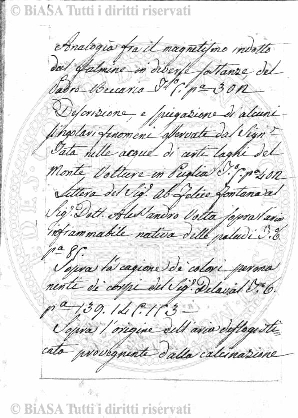 © BiASA Tutti i diritti riservati
Analogia fra il magnetismo indotto
dal fulmine in diverse sostanze del
Padre Beccaria T.º pª 302
Descrizione, e spiegazione di alcuni
singolari fenomeni osservati dal Sigr
Tata nelle acque di certi laghi del
Monte Volture in Puglia pª 402
Lettera del Sigr Ab. Felice Fontana al
Sigr Dott. Alessandro Volta sopra l'aria
infiammabile nativa delle paludi
pª 85
Sopra la cagione de' colori perma
nenti de' corpi del Sigr Delaval
pª 139. 145. 173
Sopra l'origine dell'aria deflogisti
cata provegnente dalla calcinazione
© BiASA Tutti i diritti riservati